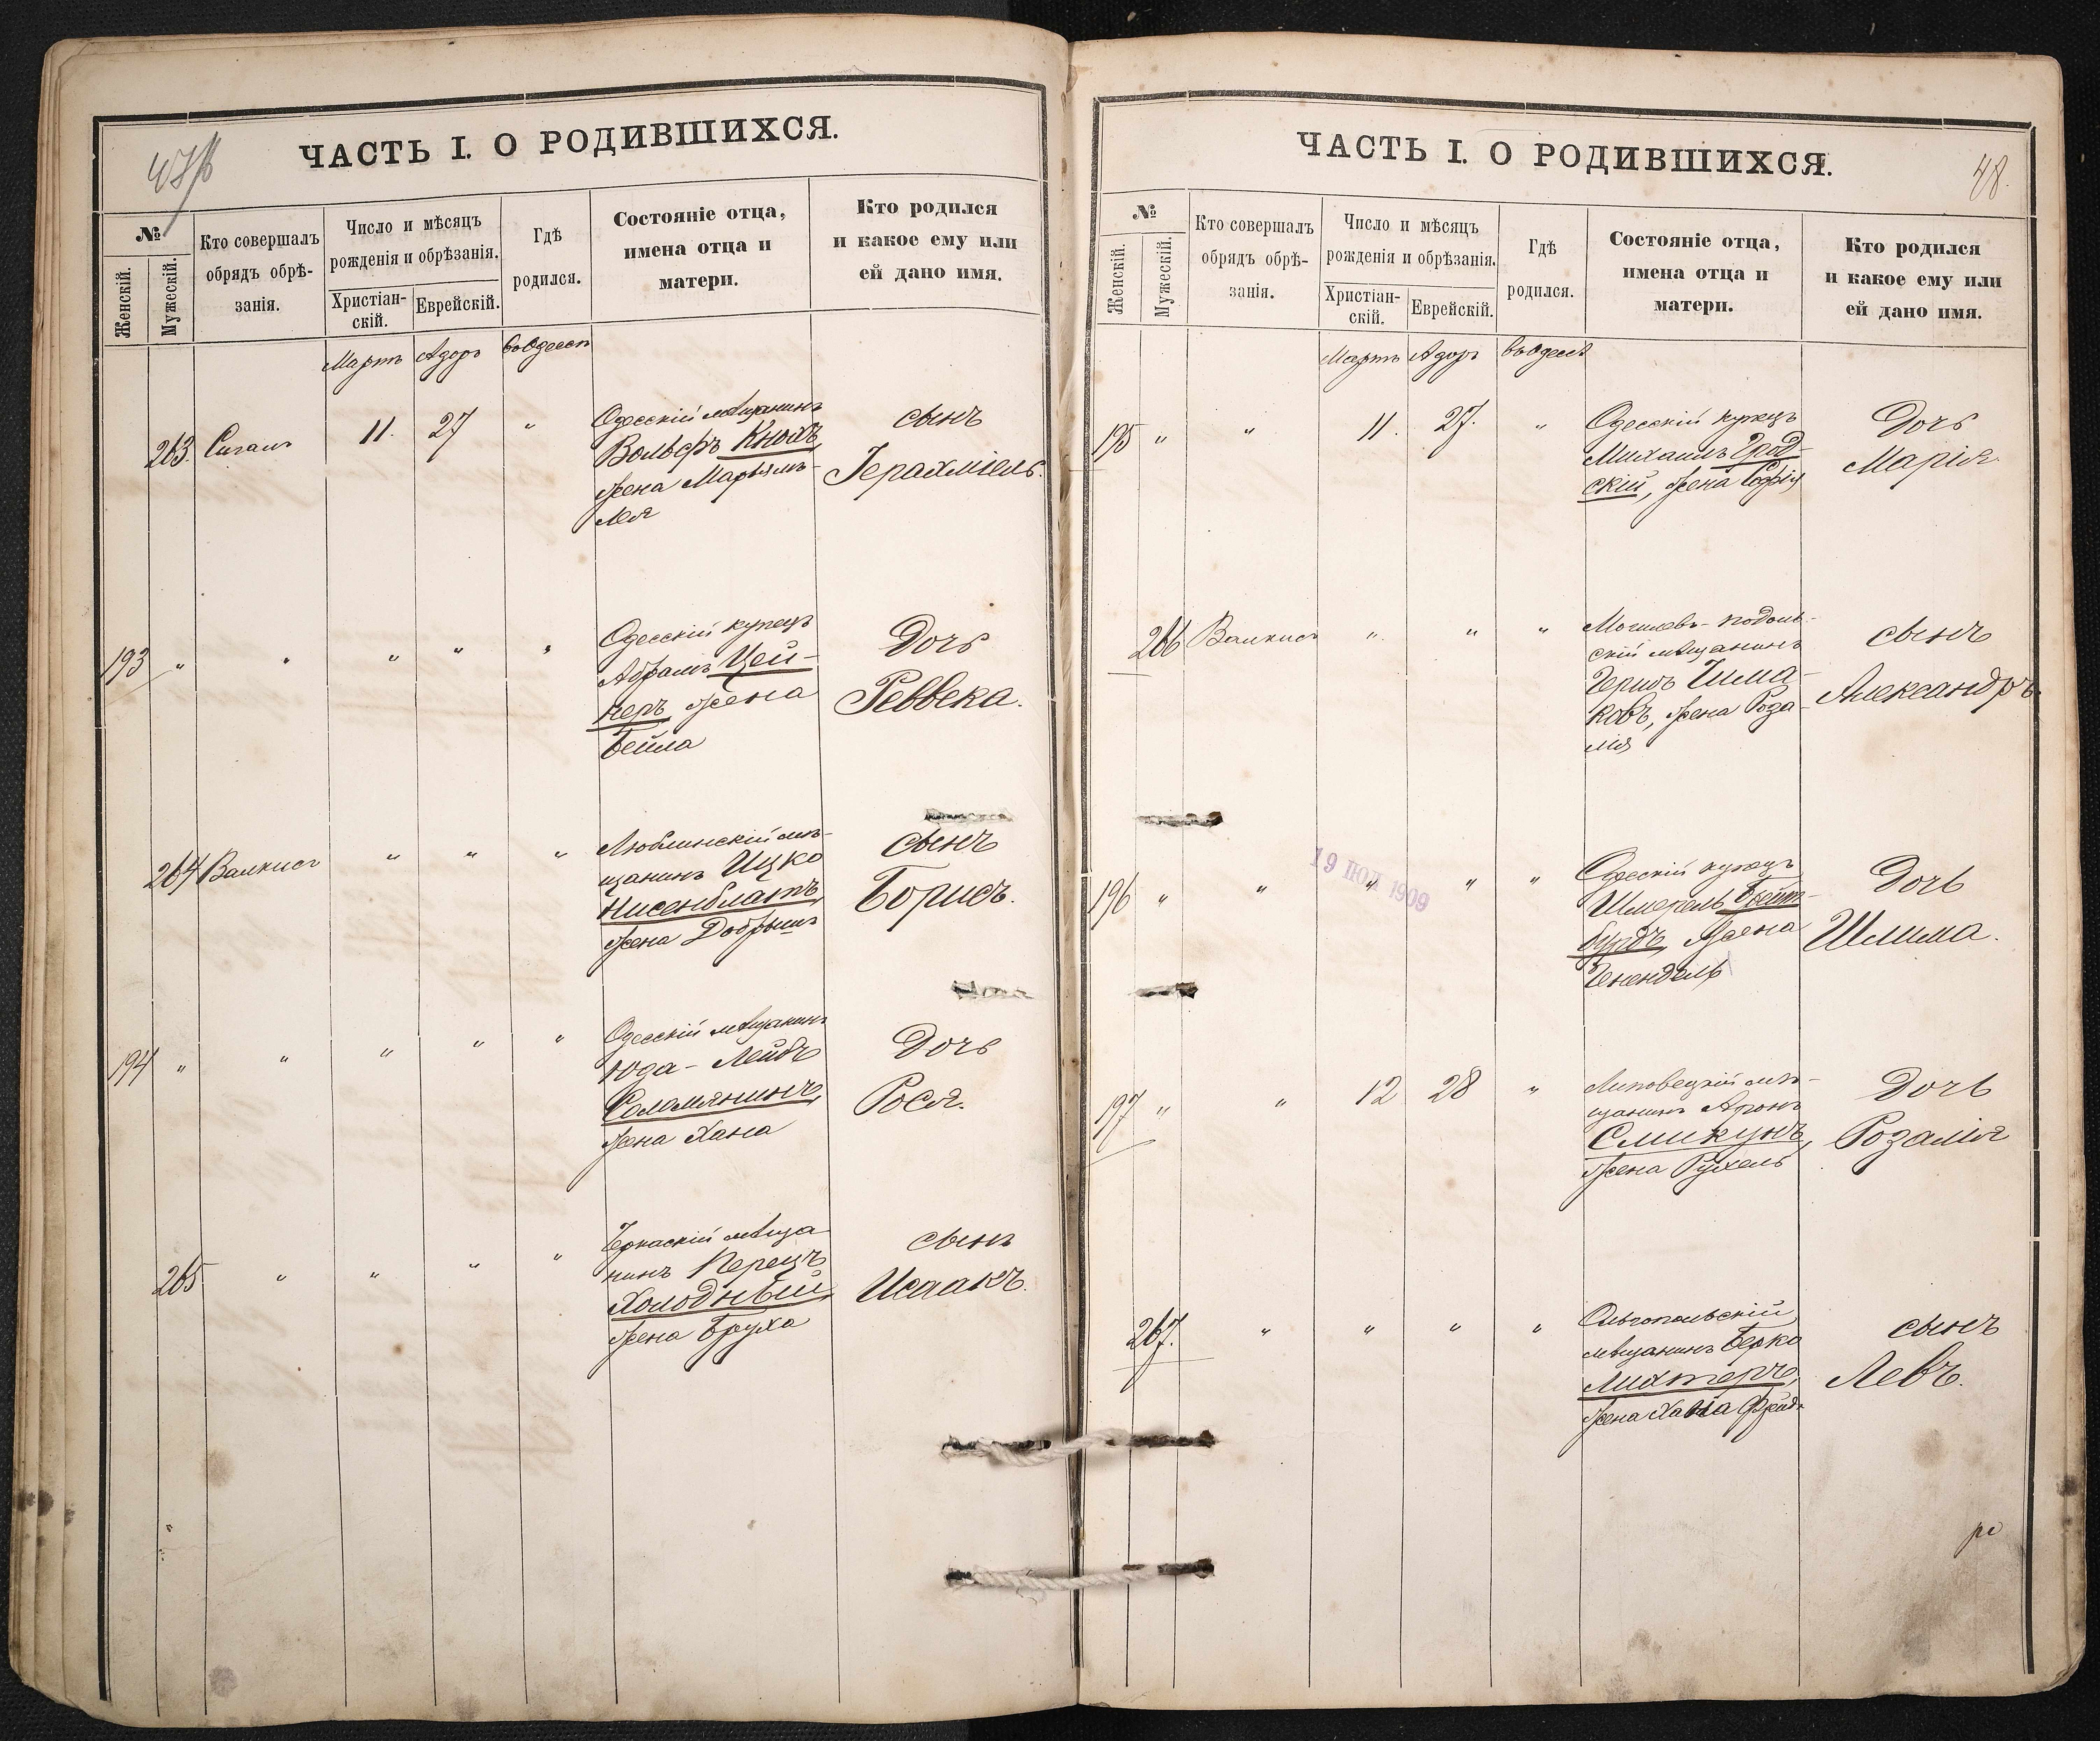 ЧАСТЬ I. О РОДИВШИХСЯ.
№
Женскій.
Мужескій.
Кто совершалъ
обрядъ обрѣ-
занія.
Число и мѣсяцъ
рожденія и обрѣзанія.
Христіан-
скій.
Еврейскій.
Гдѣ
родился.
Состояніе отца,
имена отца и
матери.
Кто родился
и какое ему или
ей дано имя.
Мартъ Адоръ въ Одессѣ
263. Сигалъ 11. 27 "
Одесскій мѣщанинъ
Вольфъ Кнохъ,
жена Марьямъ-
Лея
сынъ
Іерахміель.
193 " " " " "
Одесскій купецъ
Абрамъ Цей-
перъ жена
Бейла
Дочь
Реввека.
264 Валкисъ " " "
Люблинскій мѣ-
щанинъ Ицко
Нисенблатъ,
жена Добрышъ
сынъ
Борисъ.
194 " " " " "
Одесскій мѣщанинъ
Юда-Лейбъ
Соломянинъ,
жена Хана
Дочь
Рося.
265 " " " "
Черкаскій мѣща
нинъ Перецъ
Холодный,
жена Бруха
сынъ
Исаакъ.
ЧАСТЬ I. О РОДИВШИХСЯ.
48.
№
Женскій.
Мужескій.
Кто совершалъ
обрядъ обрѣ-
занія.
Число и мѣсяцъ
рожденія и обрѣзанія.
Христіан-
скій.
Еврейскій.
Гдѣ
родился.
Состояніе отца,
имена отца и
матери.
Кто родился
и какое ему или
ей дано имя.
Мартъ Адоръ въ Одессѣ
195 " " 11. 27. "
Одесскій купецъ
Михаилъ Грод-
скій, жена Софія
Дочь
Марія.
266 Валкисъ " " "
Могилевъ-подоль-
скій мѣщанинъ
Герша Чима-
ковъ, жена Роза-
лія
сынъ
Александръ.
19 ІЮЛ 1909
196 " " " " "
Одесскій купецъ
Шмерель Бейт-
бурдъ, жена
Генендель
Дочь
Шлима.
197 " " 12 28 "
Липовецкій мѣ-
щанинъ Аронъ
Смикунъ,
жена Рухель
Дочь
Розалія
267. " " " "
Ольгопольскій
мѣщанинъ Берко
Лихтеръ,
жена Хана Фрейда
сынъ
Левъ.